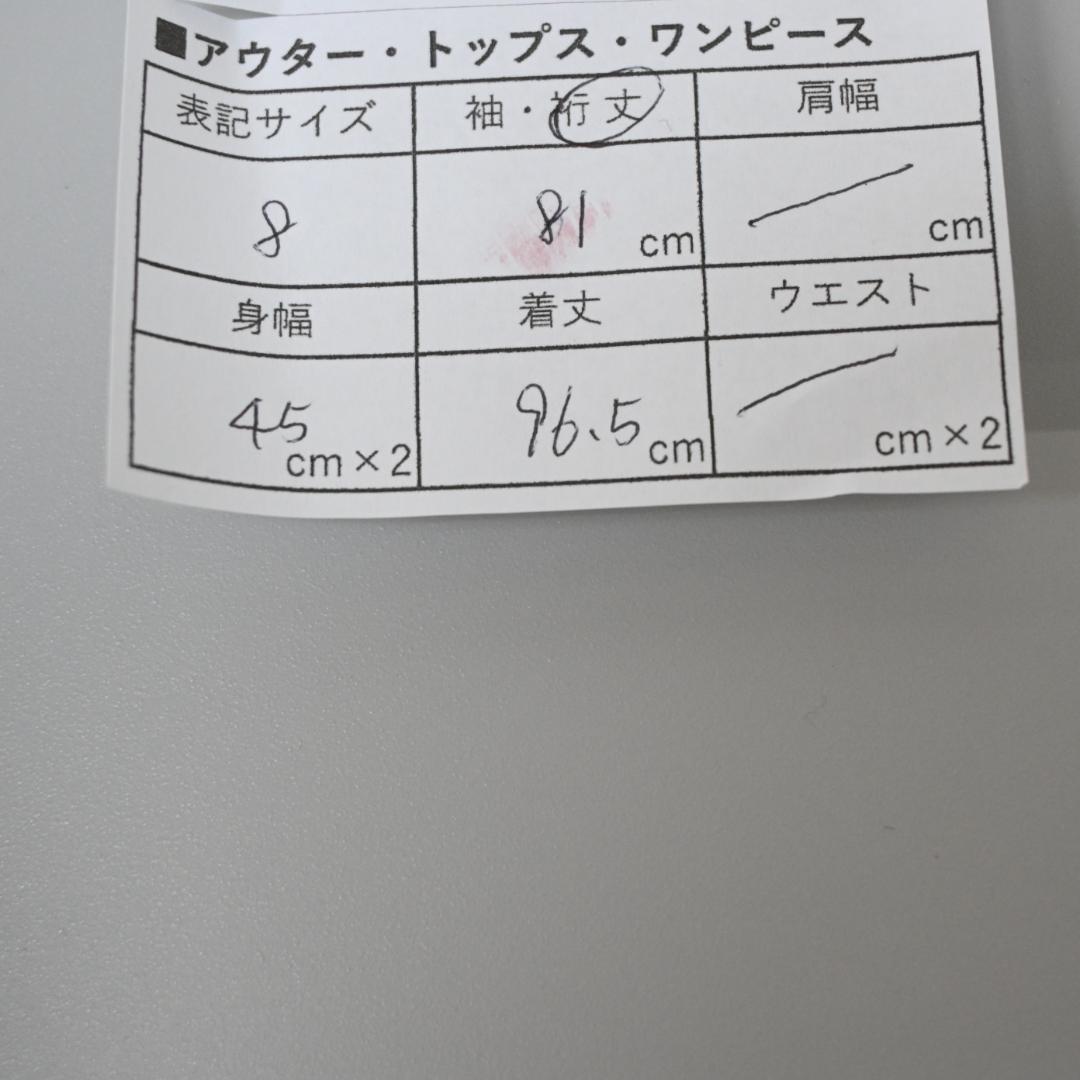 ■アウター・トップス・ワンピース
表記サイズ 袖・裄丈 肩幅
8 81 cm cm
身幅 着丈 ウエスト
45 cm×2 96.5 cm cm×2